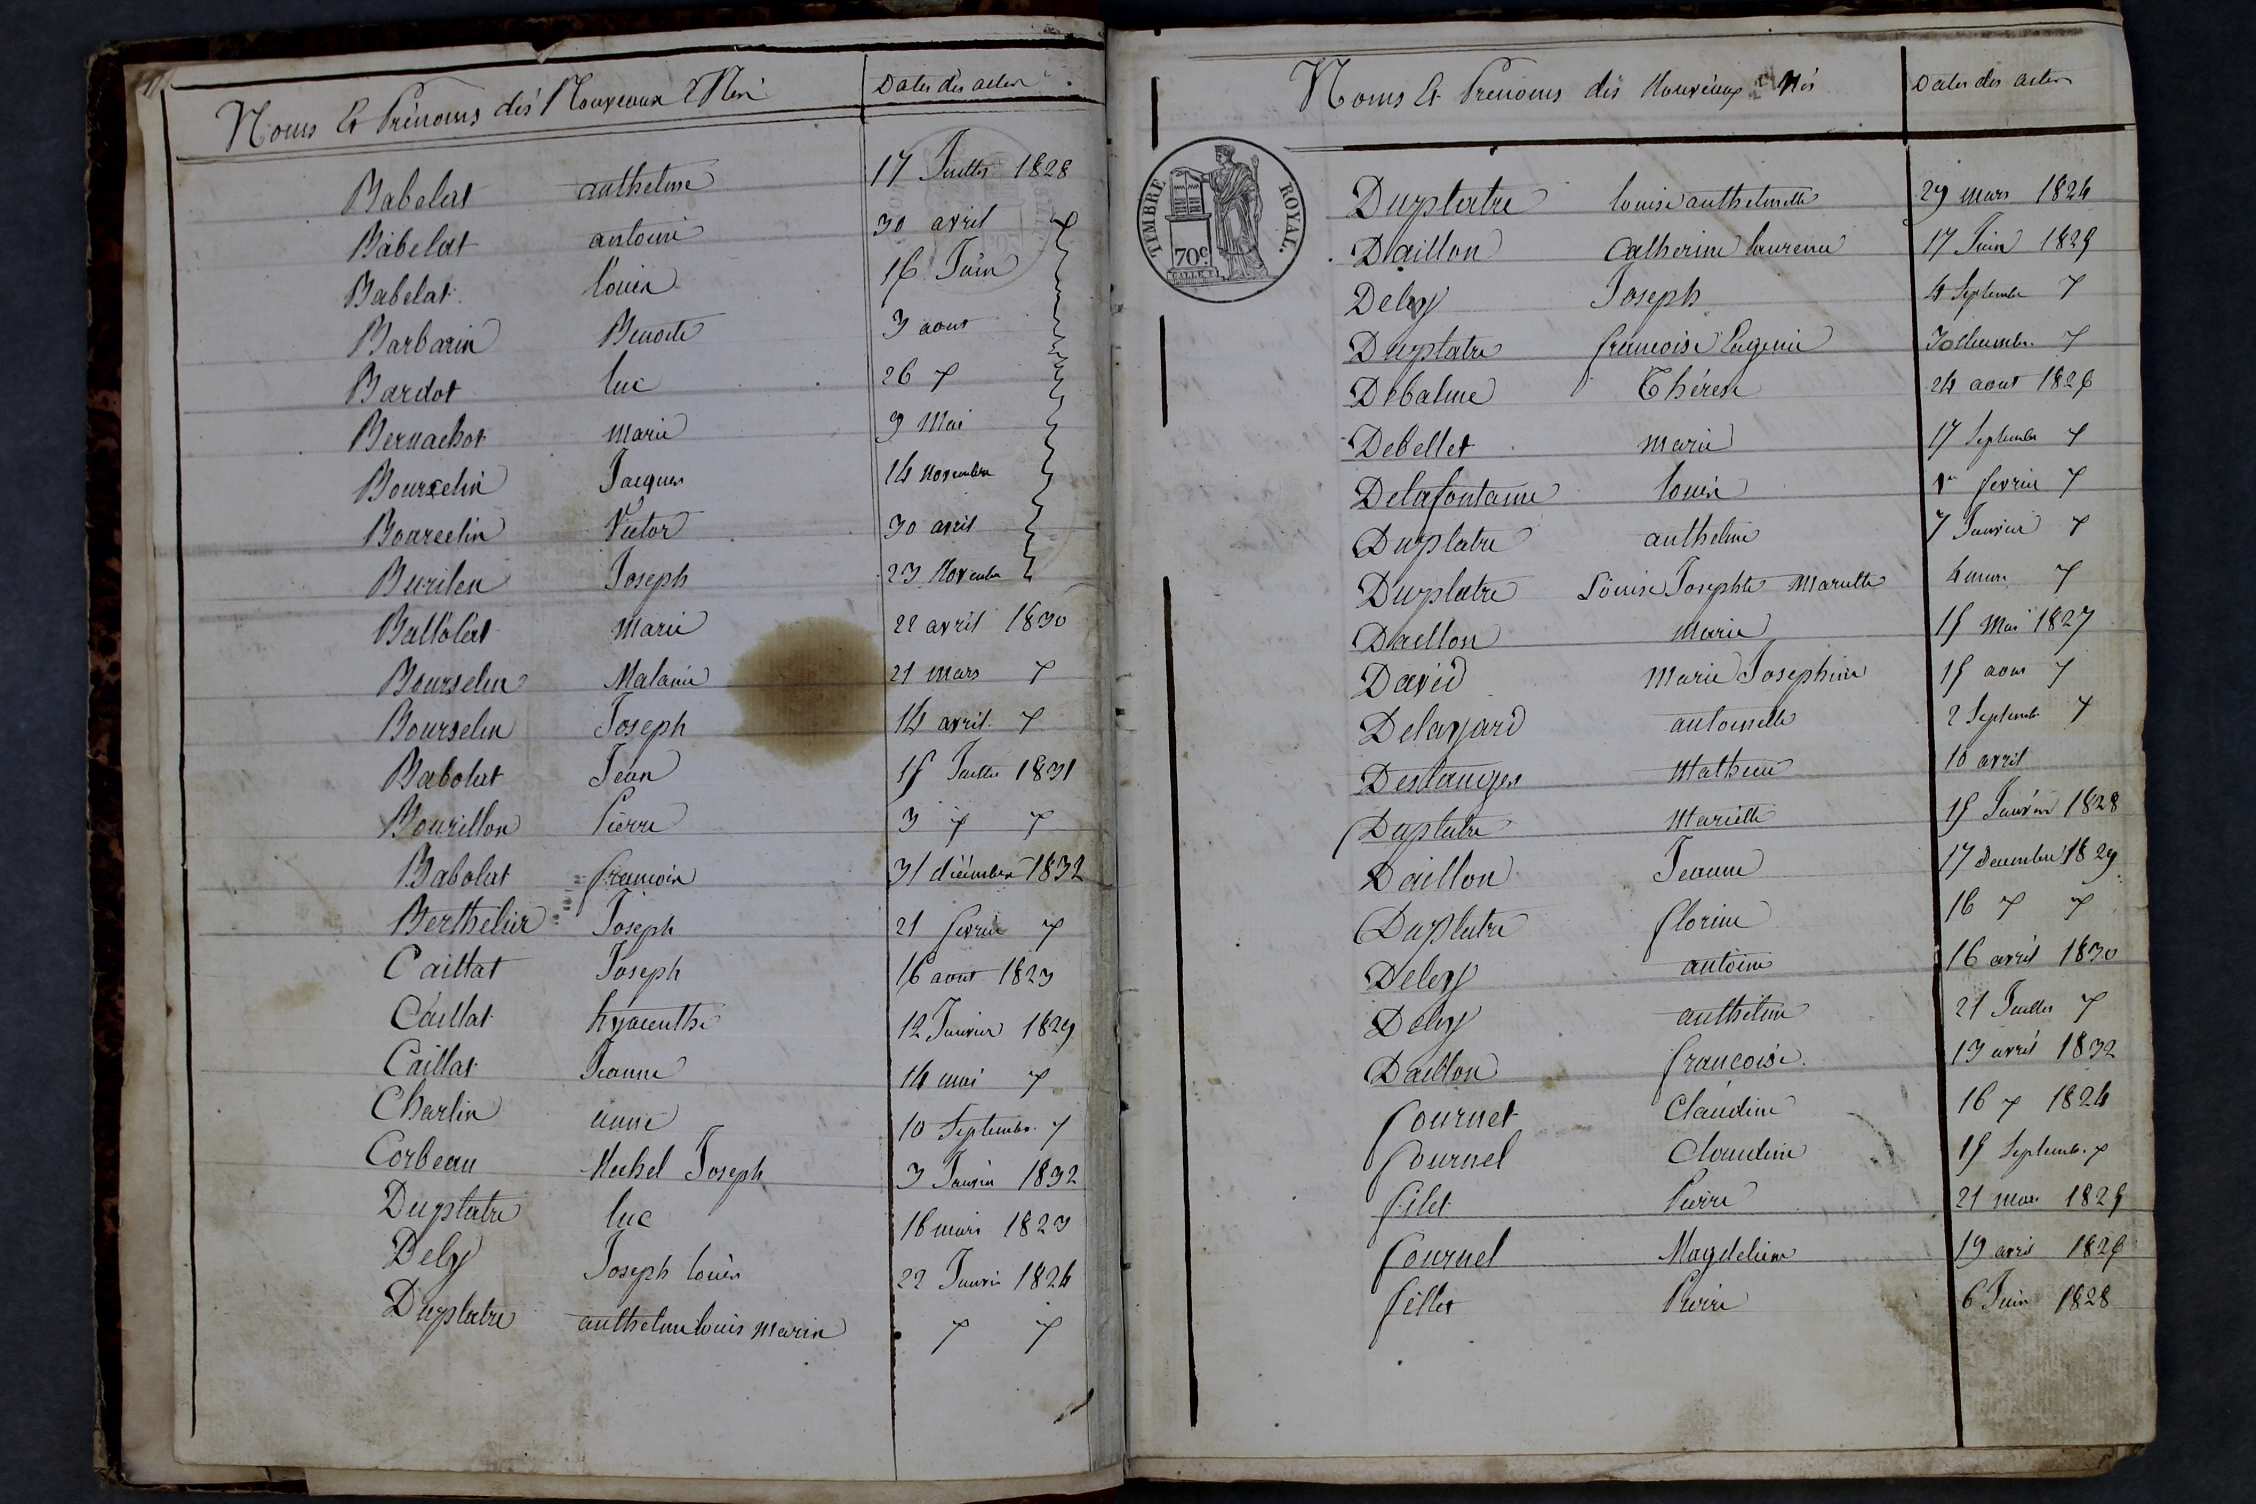 Noms Et Prénoms des Nouveaux Nés Dates des actes
Babolat anthelme 17 Juillet 1828
Babelat antoine 30 avril "
Babelat louis 16 Juin "
Barbarin Benoite 3 aout "
Bardot luc 26 " "
Bernachot marie 9 Mai "
Bourcelin Jacques 14 Novembre "
Bourcelin Victor 30 avril "
Burilen Joseph 23 Novembre "
Ballolat marie 22 avril 1830
Bourselin Malanie 21 mars "
Bourselin Joseph 14 avril "
Babolat Jean 15 Juillet 1831
Bourillon Pierre 3 " "
Babolat francois 31 décembre 1832
Berthelier Joseph 21 fevrier "
Caillat Joseph 16 aout 1823
Caillat hyacinthe 12 Janvier 1829
Caillat Jeanne 14 mai "
Charlin anne 10 Septembre "
Corbeau Michel Joseph 3 Janvier 1832
Duplatre luc 16 mars 1823
Dely Joseph louis 22 Janvier 1824
Duplatre anthelme louis marin " "
Noms Et Prenoms des Nouveaux Nés Dates des actes
TIMBRE ROYAL.
70c.
Duplatre louise anthelmette 29 mars 1824
Daillon Catherine laurence 17 Juin 1825
Dely Joseph 4 Septembre "
Duplatre francoise Eugenie 30 decembre "
Debalme Thérese 24 aout 1826
Debellet marie 17 Septembre "
Delafontaine louise 1er fevrier "
Duplatre anthelme 7 Janvier "
Duplatre Louise Josephte Mariette 4 mars "
Daillon Marie 15 Mai 1827
David Marie Josephine 15 aout "
Delayard antoinette 2 Septembre "
Deslanges Mathieu 10 avril
Duplatre Mariette 15 Janvier 1828
Daillon Jeanne 17 decembre 1829
Duplatre florine 16 " "
Dely antoine 16 avril 1830
Dely anthelme 21 Juillet "
Daillon francoise 13 avril 1832
fournet Claudine 16 " 1824
fournel Claudine 15 Septembre "
filet Pierre 21 mai 1825
fournel Magdeleine 19 avril 1826
fillet Pierre 6 Juin 1828